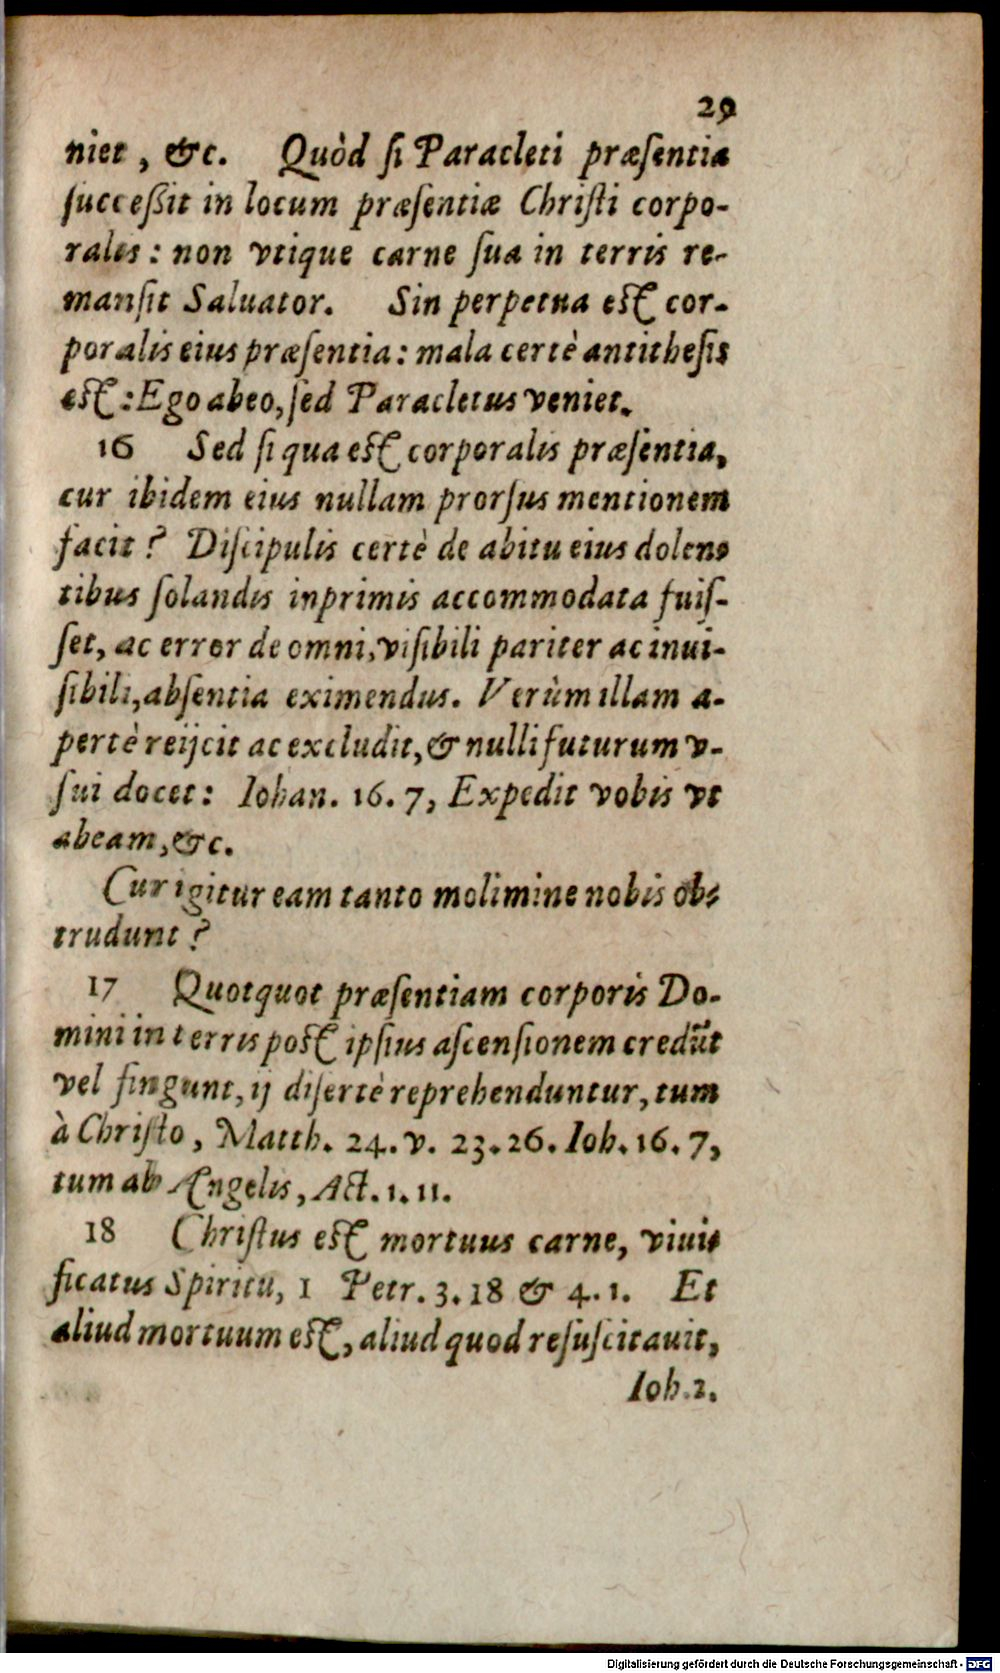 29
niet, &c. Quòd ſi Paracleti præſentia
ſucceßit in locum præſentiæ Chriſti corpo-
ralis: non vtique carne ſua in terris re-
manſit Saluator. Sin perpetua eſt cor-
poralis eius præſentia: mala certè antitheſis
eſt: Ego abeo, ſed Paracletus veniet.
16 Sed ſi qua eſt corporalis præſentia,
cur ibidem eius nullam prorſus mentionem
facit? Diſcipulis certè de abitu eius dolen-
tibus ſolandis inprimis accommodata fuiſ-
ſet, ac error de omni, viſibili pariter ac inui-
ſibili, abſentia eximendus. Verùm illam a-
pertè reijcit ac excludit, & nulli futurum v-
ſui docet: Iohan. 16. 7, Expedit vobis vt
abeam, &c.
Cur igitur eam tanto molimine nobis ob-
trudunt?
17 Quotquot præſentiam corporis Do-
mini in terris poſt ipſius aſcenſionem credũt
vel fingunt, ij diſertè reprehenduntur, tum
à Chriſto, Matth. 24. v. 23. 26. Ioh. 16. 7,
tum ab Angelis, Act. 1. 11.
18 Chriſtus eſt mortuus carne, viui-
ficatus Spiritu, 1 Petr. 3. 18 & 4. 1. Et
aliud mortuum eſt, aliud quod reſuſcitauit,
Ioh. 2.
Digitalisierung gefördert durch die Deutsche Forschungsgemeinschaft - DFG